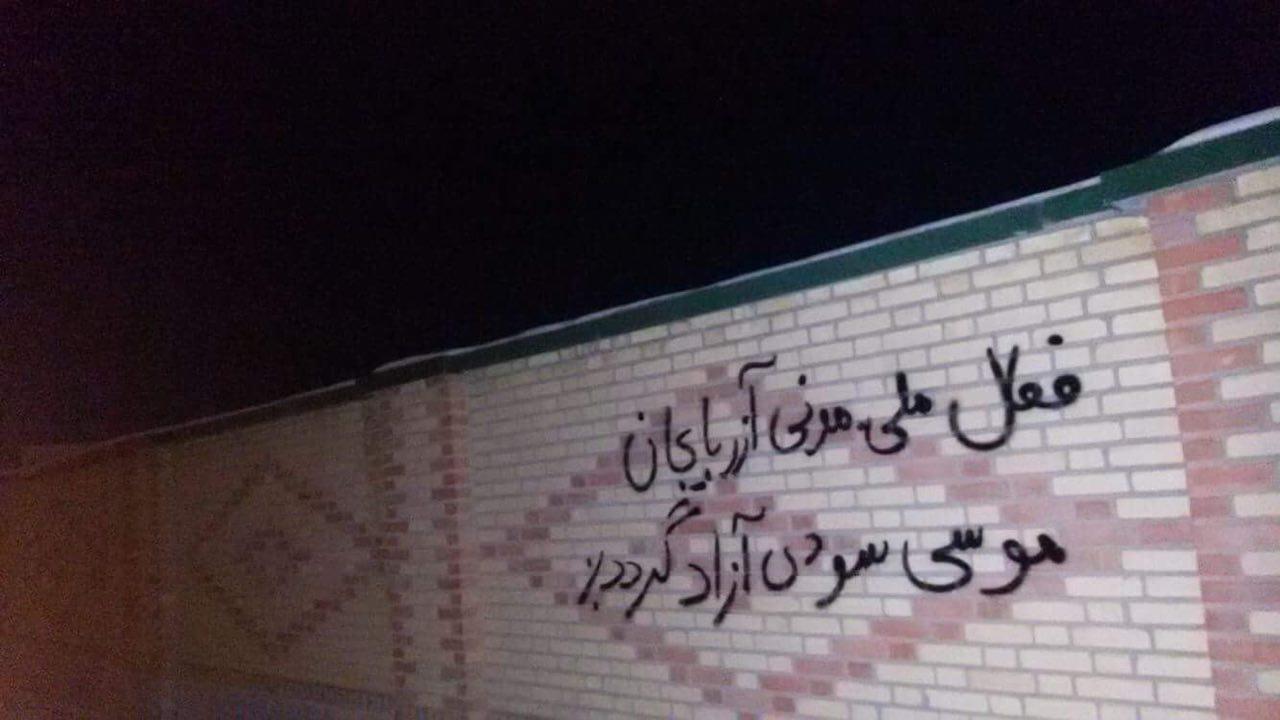 فعال ملی مدنی آزربایجان
موسی سودی آزاد گردد